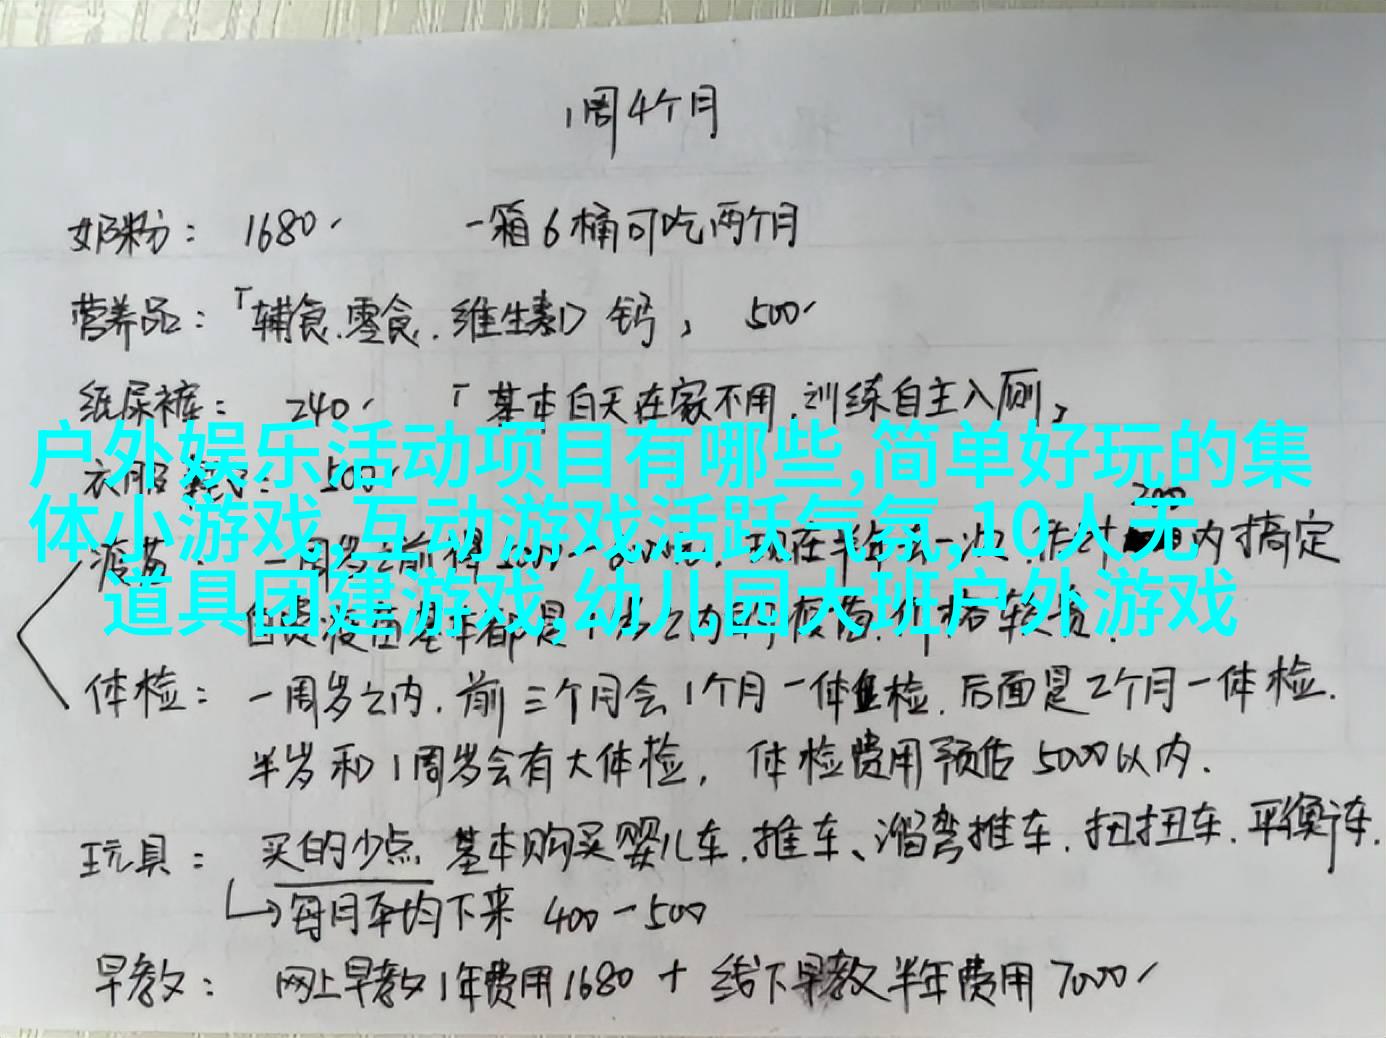 1周4个月
奶粉： 1680 一箱6桶可吃两个月
营养品：「辅食.零食.维生素D 钙」 500
纸尿裤： 240 「基本白天在家不用,训练自主入厕」
户外娱乐活动项目有哪些,简单好玩的集
衣服 500
体小游戏,互动游戏活跃气氛,10人无
疫苗 一周岁之前得 现在半年会一次 内搞定
道具团建游戏,幼儿园大班户外游戏
价格较贵.
体检： 一周岁之内.前三个月会1个月一体检.后面是2个月一体检.
半岁和1周岁会有大体检, 体检费用预估5000以内.
玩具： 买的少点 基本购买婴儿车.推车、溜弯推车.扭扭车.平衡车.
每月平均下来 400-500
早教： 网上早教1年费用1680 + 线下早教半年费用7000